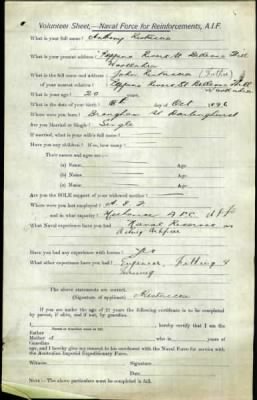 Volunteer Sheet,—Naval Force for Reinforcements, A.I.F.
What is your full name? Anthony
What is your present address?
Woollahra
What is the full name and address John (Father)
of your nearest relative?
What is your age? 20 years.
What is the date of your birth? 8th day of Oct 1896
Where were you born? Darlinghurst
Are you Married or Single? Single
If married, what is your wife's full name?
Have you any children? If so, how many?
Their names and ages are:—
(a) Age
(b) Age
(c) Age
Are you the SOLE support of your widowed mother?
Where were you last employed? A.I.F.
and in what capacity? Mechanic
What Naval experience have you had? Naval Reserves
Have you had any experience with horses? Yes
What other experience have you had? Engineer, Fitting &
Turning
The above statements are correct.
(Signature of applicant)
If you are under the age of 21 years the following certificate is to be completed
by parent, if alive, and if not, by guardian.
I, hereby certify that I am the
Father
Mother of who is years of
Guardian
age, and I hereby give my consent to his enrolment with the Naval Force for service with
the Australian Imperial Expeditionary Force.
Witness Signature
Date Date
NOTE.—The above particulars must be completed in full.